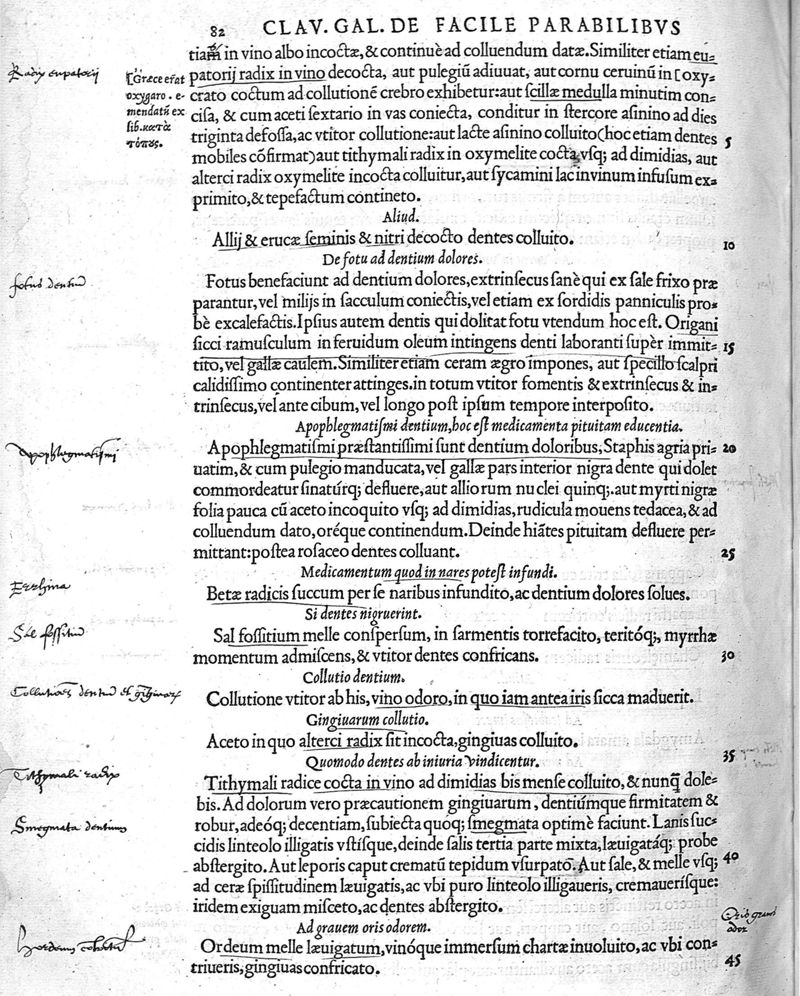 82 CLAV. GAL. DE FACILE PARABILIBVS
tiam in vino albo incoctæ, & continuè ad colluendum datæ. Similiter etiam eu-
patorij radix in vino decocta, aut pulegiũ adiuuat, aut cornu ceruinũ in [oxy-
crato coctum ad collutionẽ crebro exhibetur: aut scillæ medulla minutim con-
cisa, & cum aceti sextario in vas coniecta, conditur in stercore asinino ad dies
triginta defossa, ac vtitor collutione: aut lacte asinino colluito (hoc etiam dentes 5
mobiles cõfirmat) aut tithymali radix in oxymelite cocta vsq; ad dimidias, aut
alterci radix oxymelite incocta colluitur, aut sycamini lac in vinum infusum ex-
primito, & tepefactum contineto.
Aliud.
Allij & erucæ seminis & nitri decocto dentes colluito. 10
De fotu ad dentium dolores.
Fotus benefaciunt ad dentium dolores, extrinsecus sanè qui ex sale frixo præ
parantur, vel milijs in sacculum coniectis, vel etiam ex sordidis panniculis pro-
bè excalefactis. Ipsius autem dentis qui dolitat fotu vtendum hoc est. Origani
sicci ramusculum in feruidum oleum intingens denti laboranti supèr immit- 15
tito, vel gallæ caulem. Similiter etiam ceram ægro impones, aut specillo scalpri
calidissimo continenter attinges. in totum vtitor fomentis & extrinsecus & in-
trinsecus, vel ante cibum, vel longo post ipsum tempore interposito.
Apophlegmatismi dentium, hoc est medicamenta pituitam educentia.
Apophlegmatismi præstantissimi sunt dentium doloribus, Staphis agria pri- 20
uatim, & cum pulegio manducata, vel gallæ pars interior nigra dente qui dolet
commordeatur sinatúrq; defluere, aut alliorum nuclei quinq;. aut myrti nigræ
folia pauca cũ aceto incoquito vsq; ad dimidias, rudicula mouens tedacea, & ad
colluendum dato, oréque continendum. Deinde hiãtes pituitam defluere per-
mittant: postea rosaceo dentes colluant. 25
Medicamentum quod in nares potest infundi.
Betæ radicis succum per se naribus infundito, ac dentium dolores solues.
Si dentes nigruerint.
Sal fossitium melle conspersum, in sarmentis torrefacito, teritóq;, myrrhæ
momentum admiscens, & vtitor dentes confricans. 30
Collutio dentium.
Collutione vtitor ab his, vino odoro, in quo iam antea iris sicca maduerit.
Gingiuarum collutio.
Aceto in quo alterci radix sit incocta, gingiuas colluito.
Quomodo dentes ab iniuria vindicentur. 35
Tithymali radice cocta in vino ad dimidias bis mense colluito, & nunq̃ dole-
bis. Ad dolorum vero præcautionem gingiuarum, dentiúmque firmitatem &
robur, adeóq; decentiam, subiecta quoq; smegmata optimè faciunt. Lanis suc-
cidis linteolo illigatis vstísque, deinde salis tertia parte mixta, læuigatáq; probe
abstergito. Aut leporis caput crematũ tepidum vsurpato. Aut sale, & melle vsq; 40
ad ceræ spissitudinem læuigatis, ac vbi puro linteolo illigaueris, cremauerísque:
iridem exiguam misceto, ac dentes abstergito.
Ad grauem oris odorem.
Ordeum melle læuigatum, vinóque immersum chartæ inuoluito, ac vbi con-
triueris, gingiuas confricato. 45
[Græce erat
oxygaro. e-
mendatũ ex
lib. κατὰ
τόπους.
Radix eupatorij
fotus dentiũ
Apophlegmatismi
Errhina
Sal fossitiũ
Collutiões dentiũ et gĩgiuarũ
Tithymali radix
Smegmata dentium